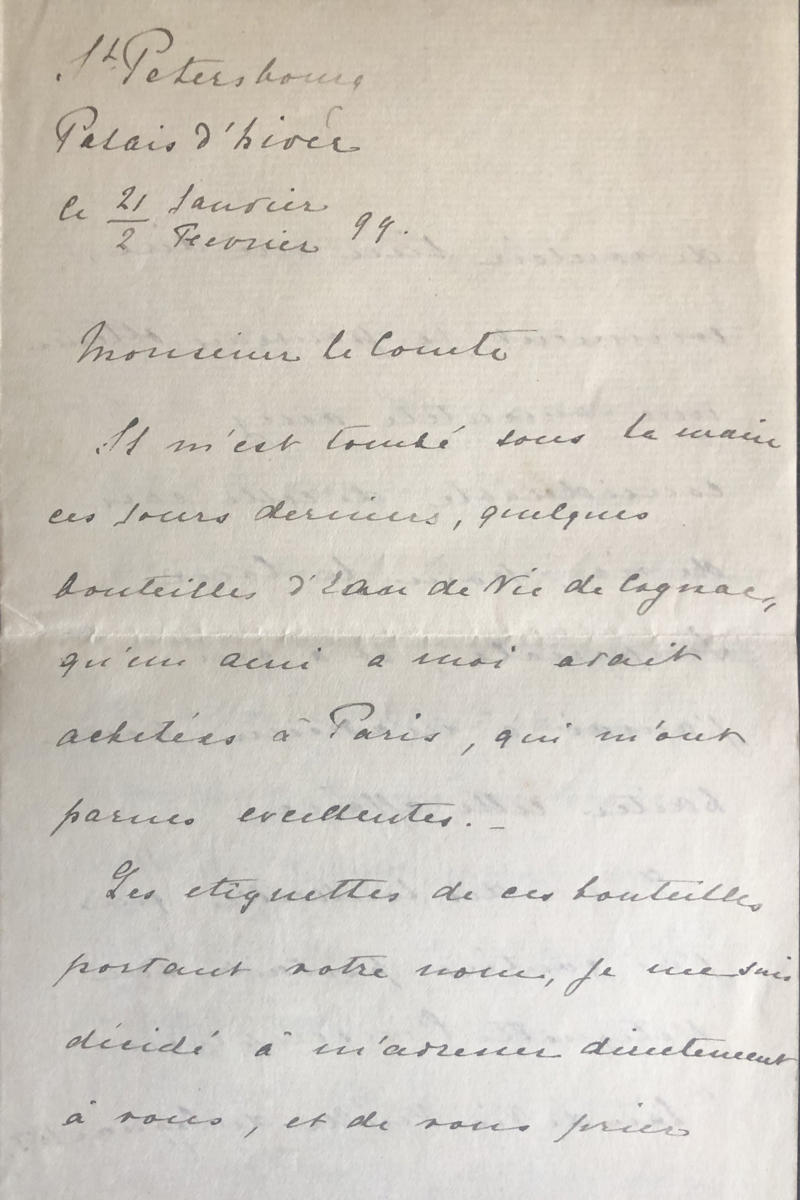 St Petersbourg
Palais d'hiver
le 21 Janvier
2 Fevrier 99.
Monsieur le Comte
Il m'est tombé sous la main
ces jours derniers, quelques
bouteilles d'Eau de Vie de Cognac,
qu'un ami a moi avait
achetées à Paris, qui m'ont
parues excellentes. _
Les etiquettes de ces bouteilles
portant votre nom, je me suis
décidé à m'adresser directement
à vous, et de vous prier